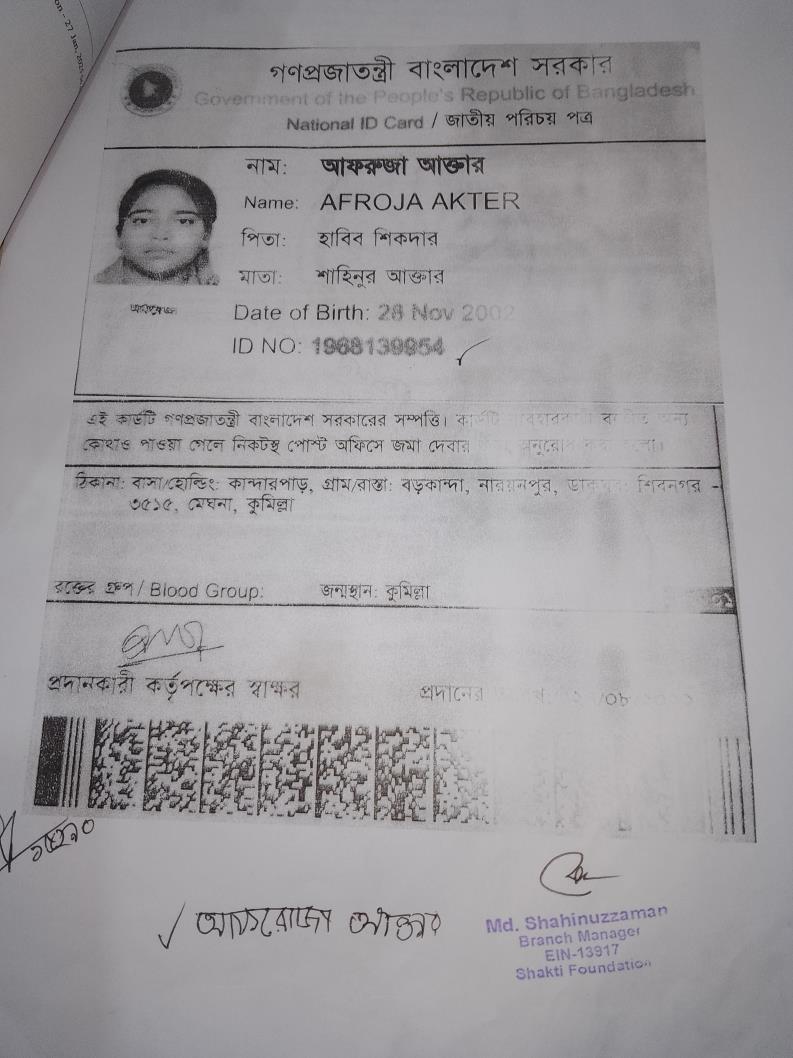 on - 27 Jan, 2025
গণপ্রজাতন্ত্রী বাংলাদেশ সরকার
Government of the People's Republic of Bangladesh
National ID Card / জাতীয় পরিচয় পত্র
নাম: আফরুজা আক্তার
Name: AFROJA AKTER
পিতা: হাবিব শিকদার
মাতা: শাহিনুর আক্তার
Date of Birth: 28 Nov 2002
ID NO: 1968139954
এই কার্ডটি গণপ্রজাতন্ত্রী বাংলাদেশ সরকারের সম্পত্তি। কার্ডটি অন্য
কোথাও পাওয়া গেলে নিকটস্থ পোস্ট অফিসে জমা দেবার
ঠিকানা: বাসা/হোল্ডিং: কান্দারপাড়, গ্রাম/রাস্তা: বড়কান্দা, নারায়নপুর, শিবনগর -
৩৫১৫, মেঘনা, কুমিল্লা
রক্তের গ্রুপ / Blood Group: জন্মস্থান: কুমিল্লা
প্রদানকারী কর্তৃপক্ষের স্বাক্ষর প্রদানের
আফরোজা আক্তার
Md. Shahinuzzaman
Branch Manager
EIN-13917
Shakti Foundation